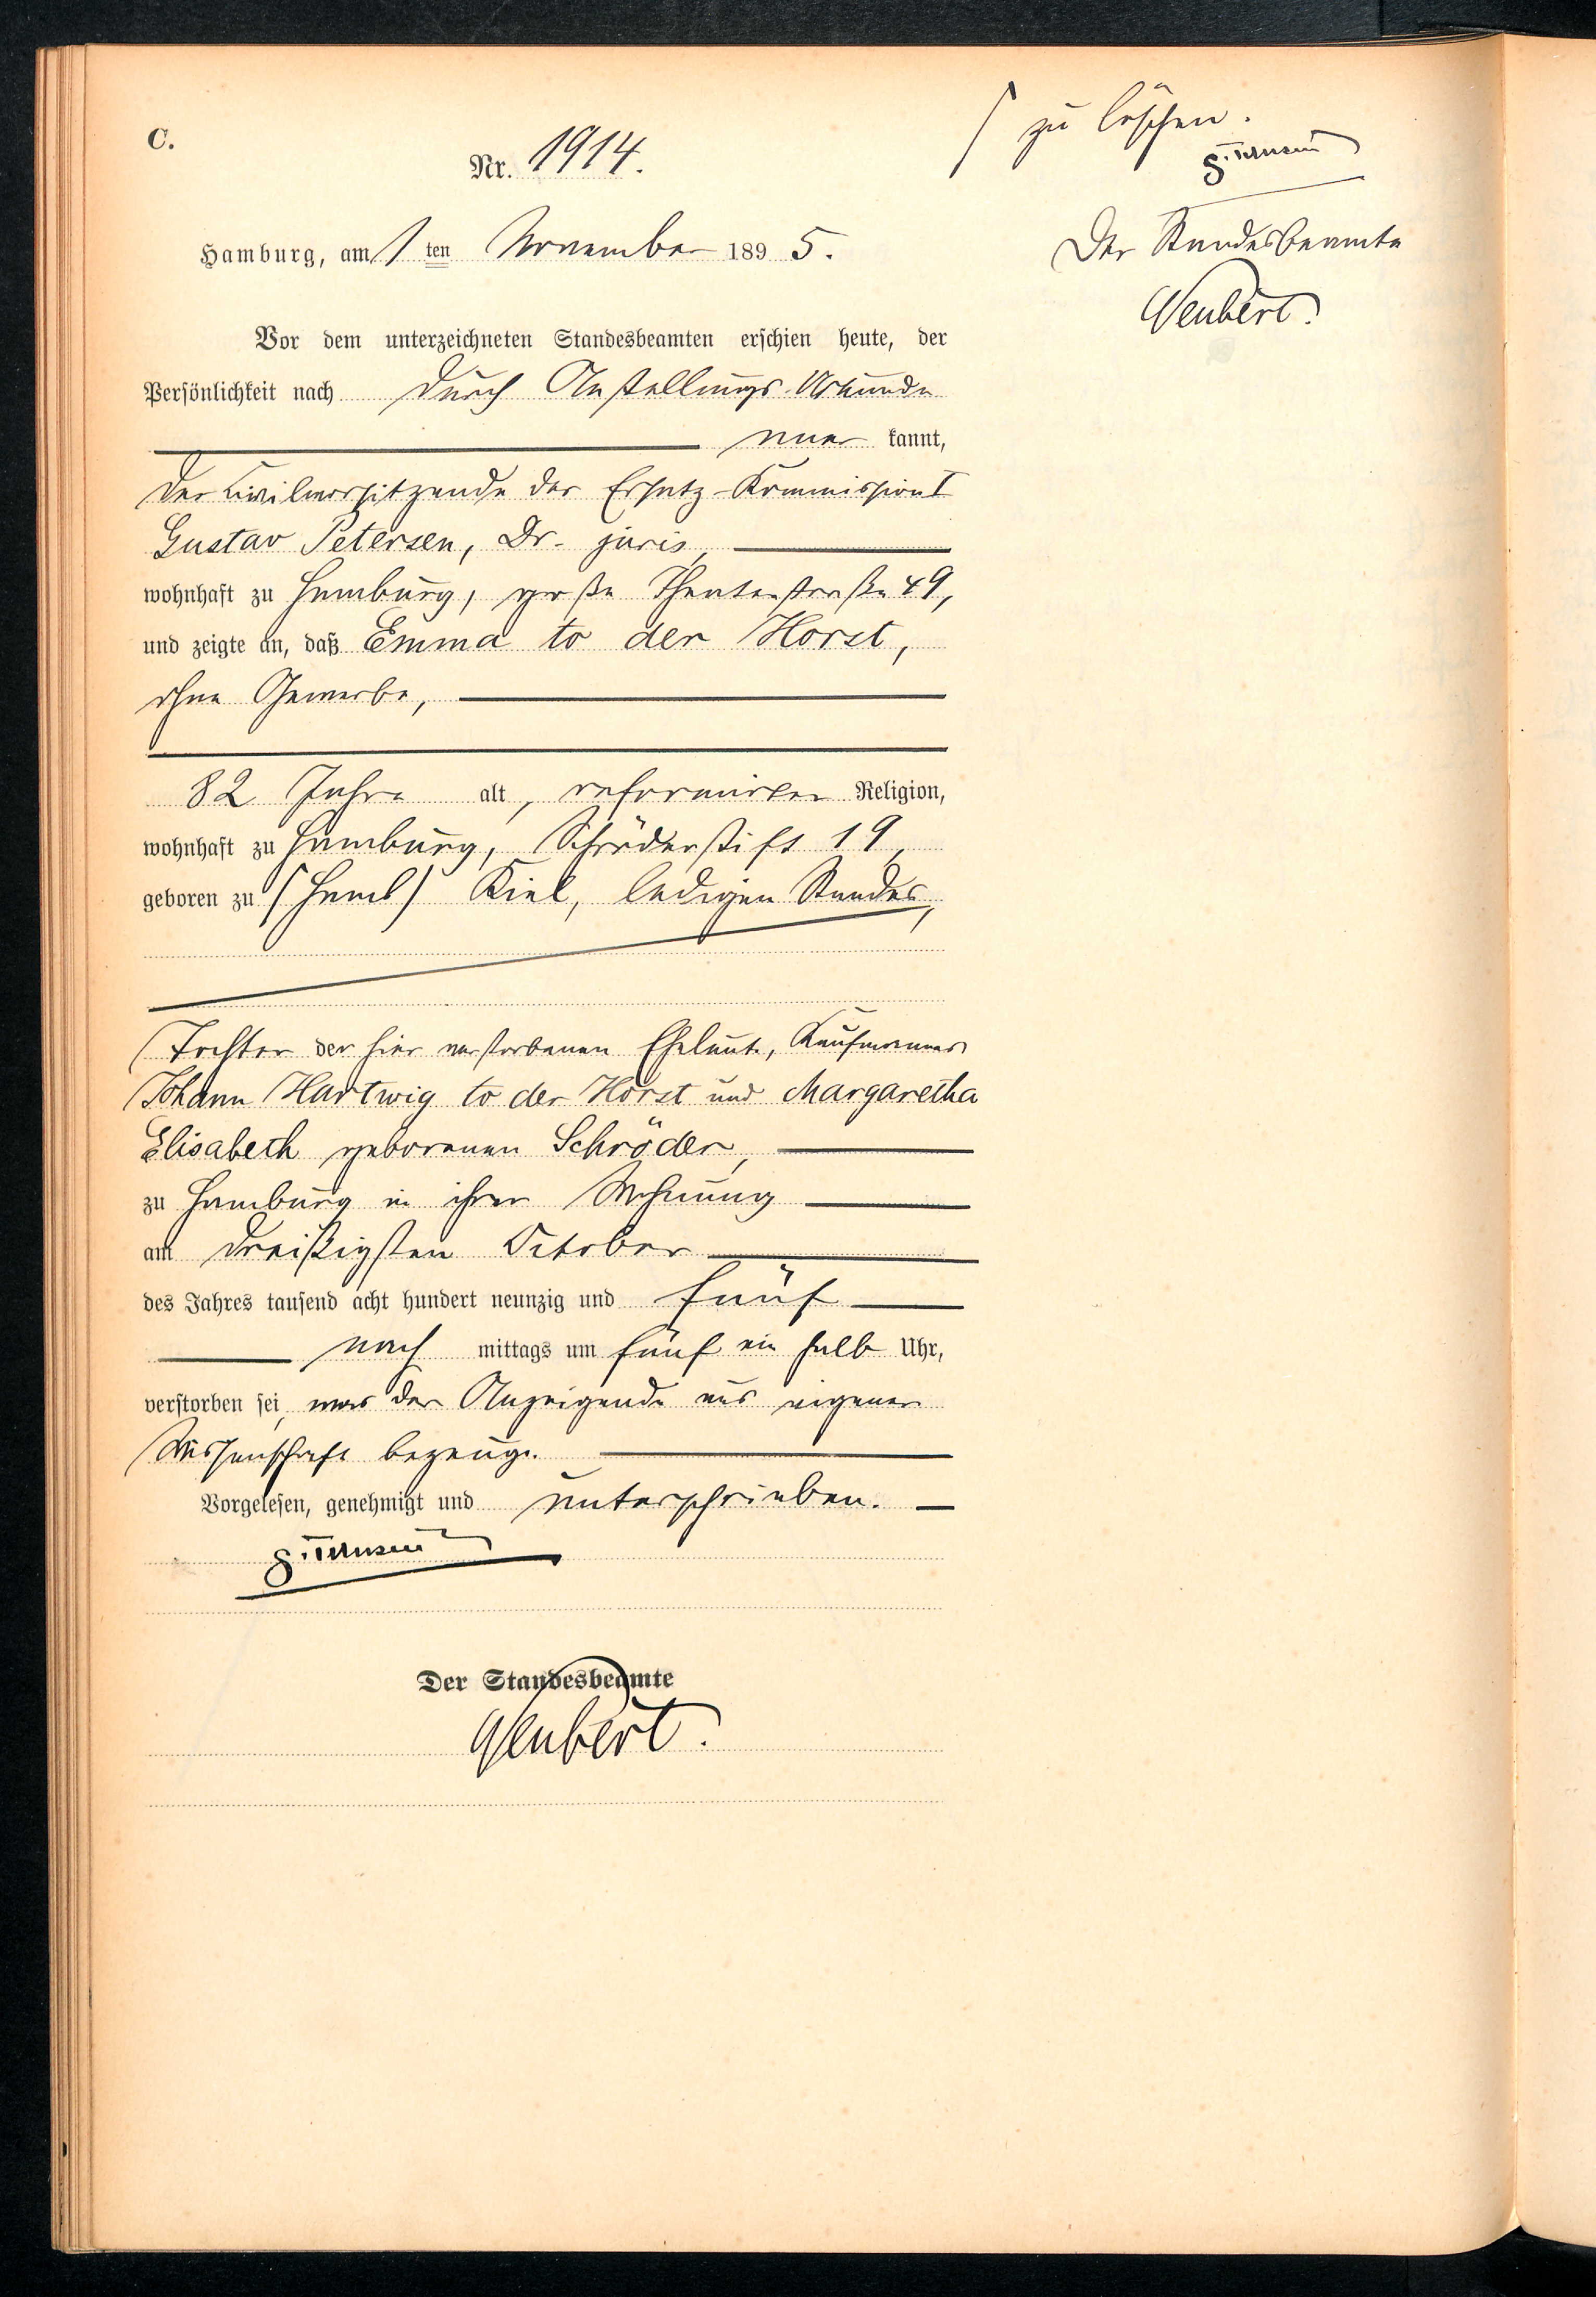 C.
Nr. 1914.
Hamburg, am 1 ten November 1895.
Vor dem unterzeichneten Standesbeamten erschien heute, der
Persönlichkeit nach durch Anstellungs-Urkunde
aner kannt,
der Civilvorsitzende der Ersatz-Kommission I
Gustav Petersen, Dr. juris,
wohnhaft zu Hamburg, große Theaterstraße 49,
und zeigte an, daß Emma to der Horst,
ohne Gewerbe,
82 Jahre alt, reformirter Religion,
wohnhaft zu Hamburg, Schröderstift 19,
geboren zu (Hamb) Kiel, ledigen Standes,
Tochter der hier verstorbenen Eheleute, Kaufmannes
Johann Hartwig to der Horst und Margaretha
Elisabeth geborenen Schröder,
zu Hamburg in ihrer Wohnung
am dreißigsten October
des Jahres tausend acht hundert neunzig und fünf
nach mittags um fünf ein halb Uhr,
verstorben sei, was der Anzeigende aus eigener
Wissenschaft bezeuge.
Vorgelesen, genehmigt und unterschrieben.
G. Petersen
Der Standesbeamte
Neubert.
zu löschen.
G. Petersen
Der Standesbeamte
Neubert.